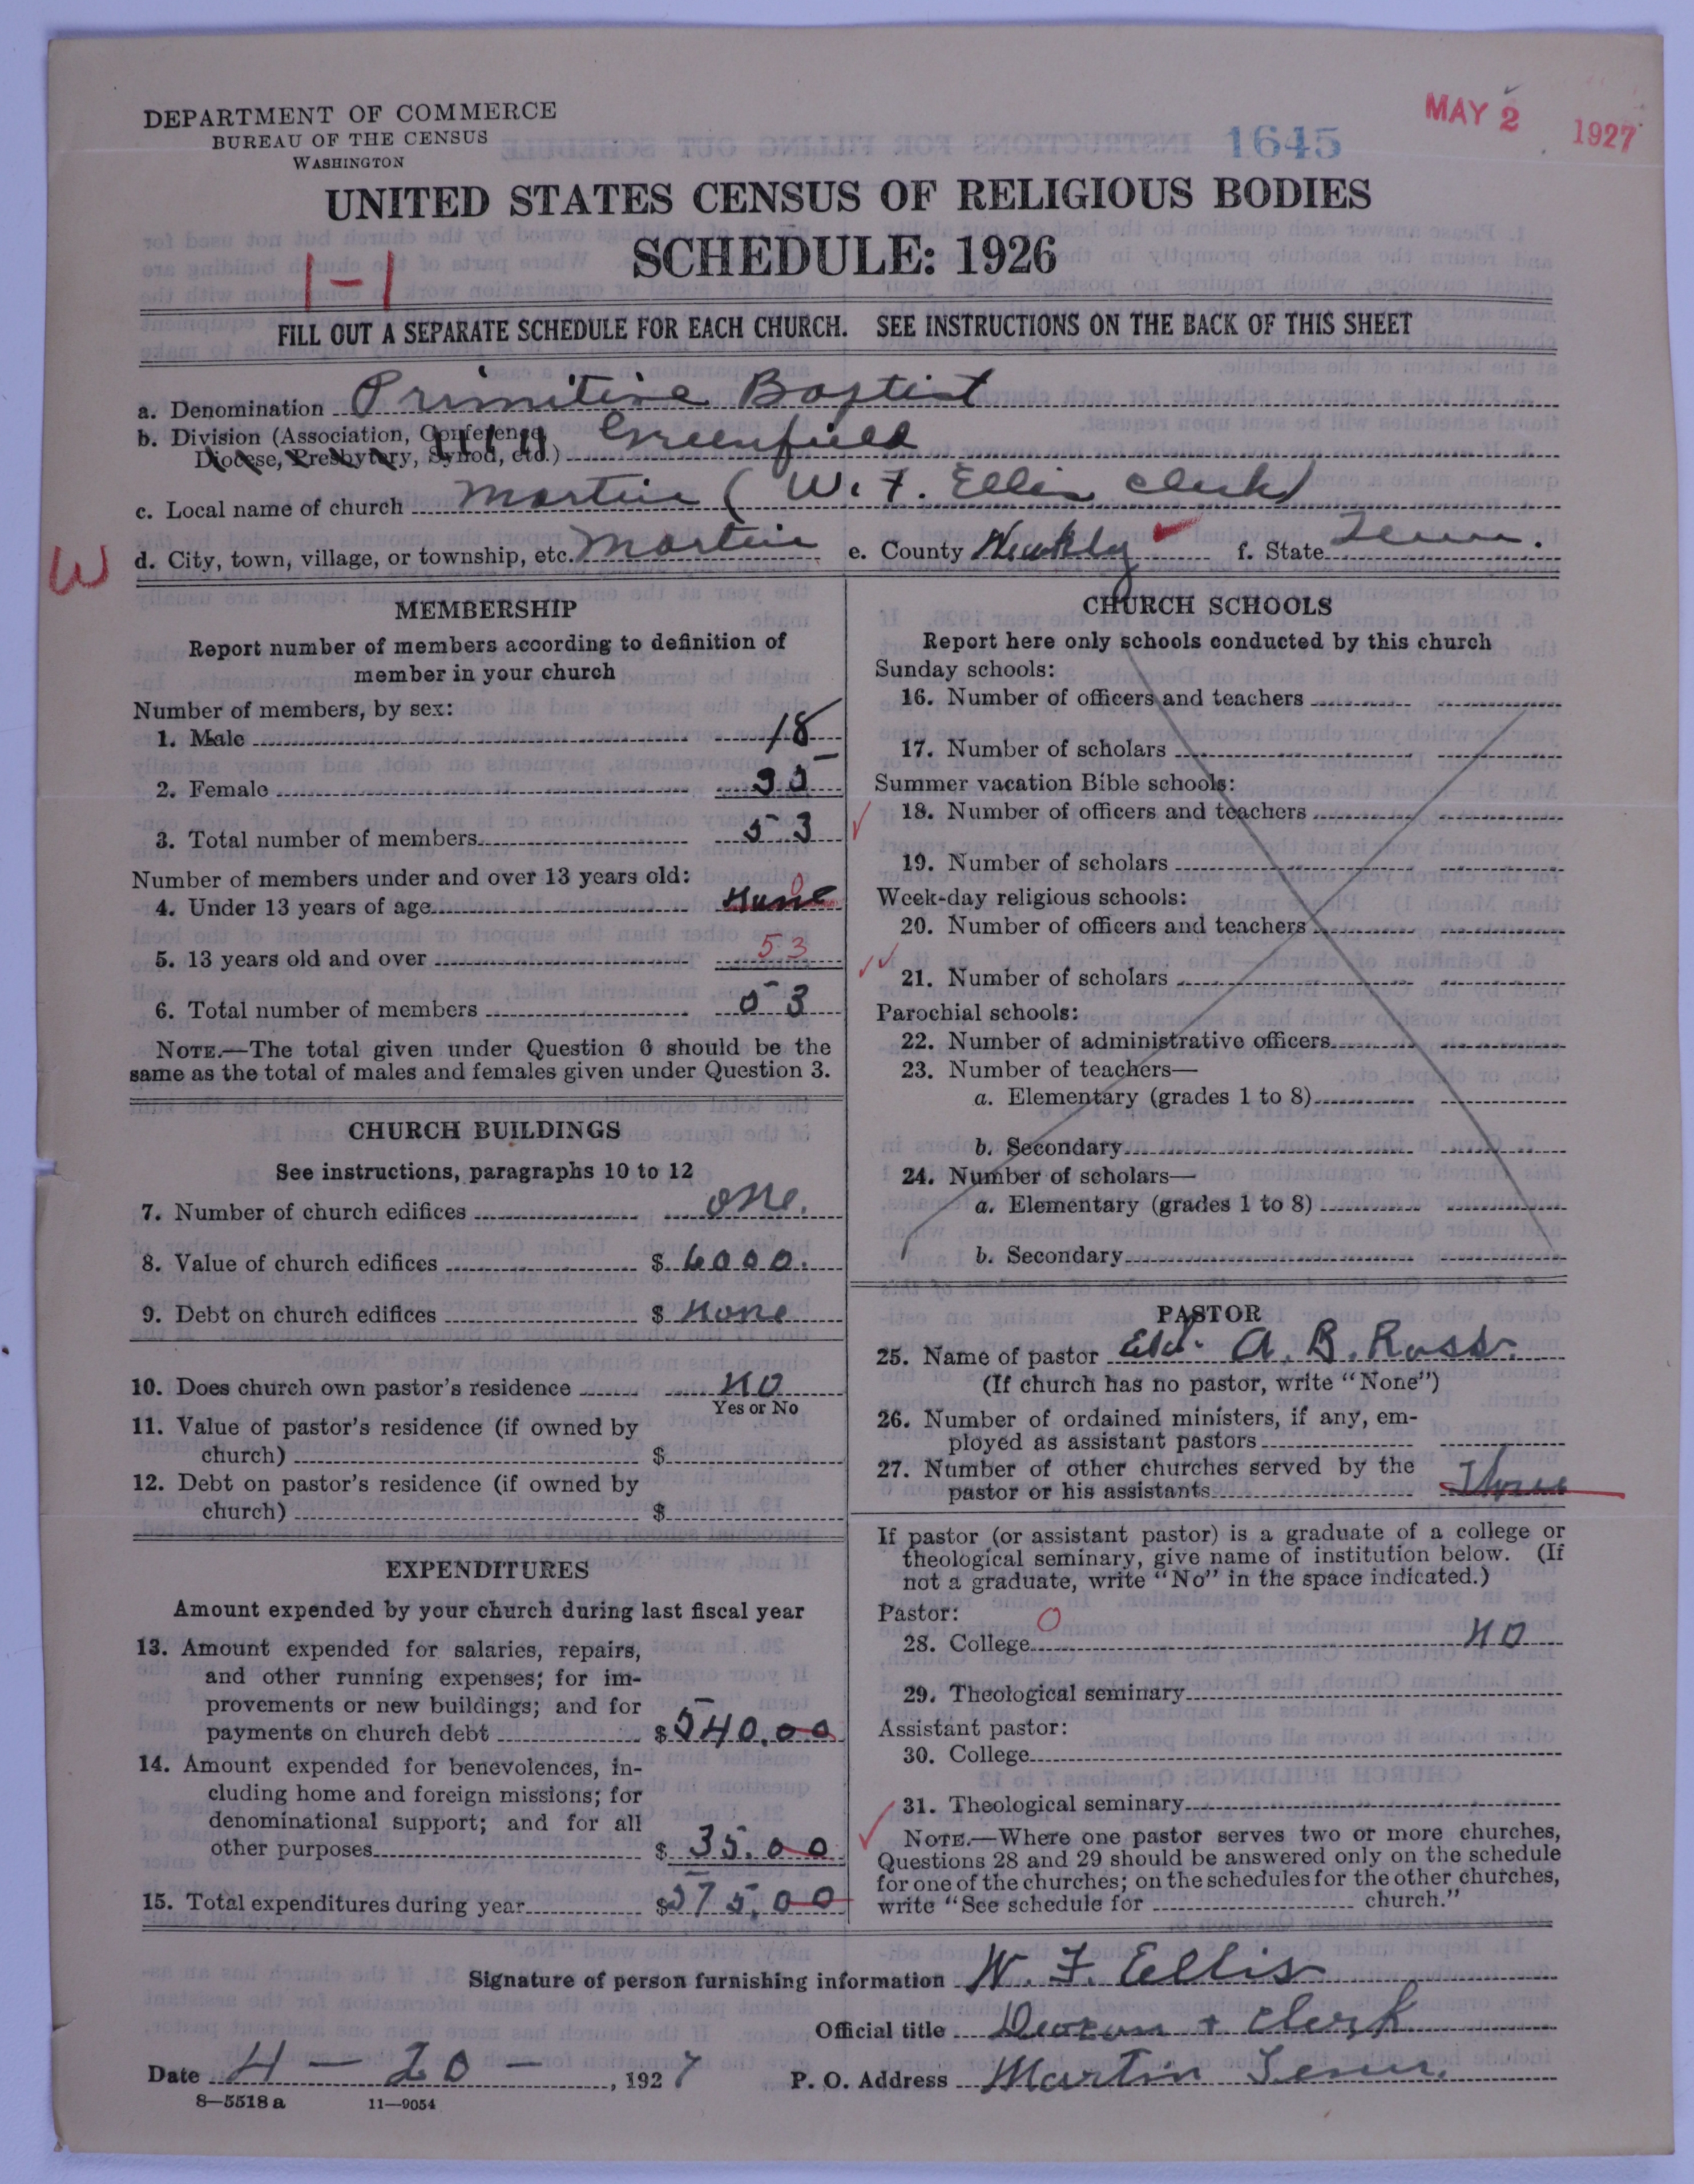 DEPARTMENT OF COMMERCE
BUREAU OF THE CENSUS
WASHINGTON
1645
MAY 2 1927
UNITED STATES CENSUS OF RELIGIOUS BODIES
SCHEDULE: 1926
1-1
FILL OUT A SEPARATE SCHEDULE FOR EACH CHURCH. SEE INSTRUCTIONS ON THE BACK OF THIS SHEET
a. Denomination Primitive Baptist
b. Division (Association, Conference, Diocese, Presbytery, Synod, etc.) Greenfield
c. Local name of church Martin (W. F. Ellis Clerk)
W
d. City, town, village, or township, etc. Martin e. County Weakly f. State Tenn.
MEMBERSHIP
Report number of members according to definition of
member in your church
Number of members, by sex:
1. Male 18
2. Female 35
3. Total number of members 53
Number of members under and over 13 years old:
4. Under 13 years of age None 0
5. 13 years old and over 53
6. Total number of members 53
NOTE.—The total given under Question 6 should be the
same as the total of males and females given under Question 3.
CHURCH BUILDINGS
See instructions, paragraphs 10 to 12
7. Number of church edifices one.
8. Value of church edifices $ 6000.
9. Debt on church edifices $ None
10. Does church own pastor's residence NO
Yes or No
11. Value of pastor's residence (if owned by
church) $
12. Debt on pastor's residence (if owned by
church) $
EXPENDITURES
Amount expended by your church during last fiscal year
13. Amount expended for salaries, repairs,
and other running expenses; for im-
provements or new buildings; and for
payments on church debt $ 540.00
14. Amount expended for benevolences, in-
cluding home and foreign missions; for
denominational support; and for all
other purposes $ 35.00
15. Total expenditures during year $ 575.00
CHURCH SCHOOLS
Report here only schools conducted by this church
Sunday schools:
16. Number of officers and teachers
17. Number of scholars
Summer vacation Bible schools:
18. Number of officers and teachers
19. Number of scholars
Week-day religious schools:
20. Number of officers and teachers
21. Number of scholars
Parochial schools:
22. Number of administrative officers
23. Number of teachers—
a. Elementary (grades 1 to 8)
b. Secondary
24. Number of scholars—
a. Elementary (grades 1 to 8)
b. Secondary
PASTOR
25. Name of pastor Eld. A. B. Ross.
(If church has no pastor, write "None")
26. Number of ordained ministers, if any, em-
ployed as assistant pastors
27. Number of other churches served by the
pastor or his assistants Three
If pastor (or assistant pastor) is a graduate of a college or
theological seminary, give name of institution below. (If
not a graduate, write "No" in the space indicated.)
Pastor: 0
28. College NO
29. Theological seminary
Assistant pastor:
30. College
31. Theological seminary
NOTE.—Where one pastor serves two or more churches,
Questions 28 and 29 should be answered only on the schedule
for one of the churches; on the schedules for the other churches,
write "See schedule for church."
Signature of person furnishing information W. F. Ellis
Official title Deacon + Clerk
Date 4 - 20 - , 1927 P. O. Address Martin Tenn.
8—5518 a 11—9054